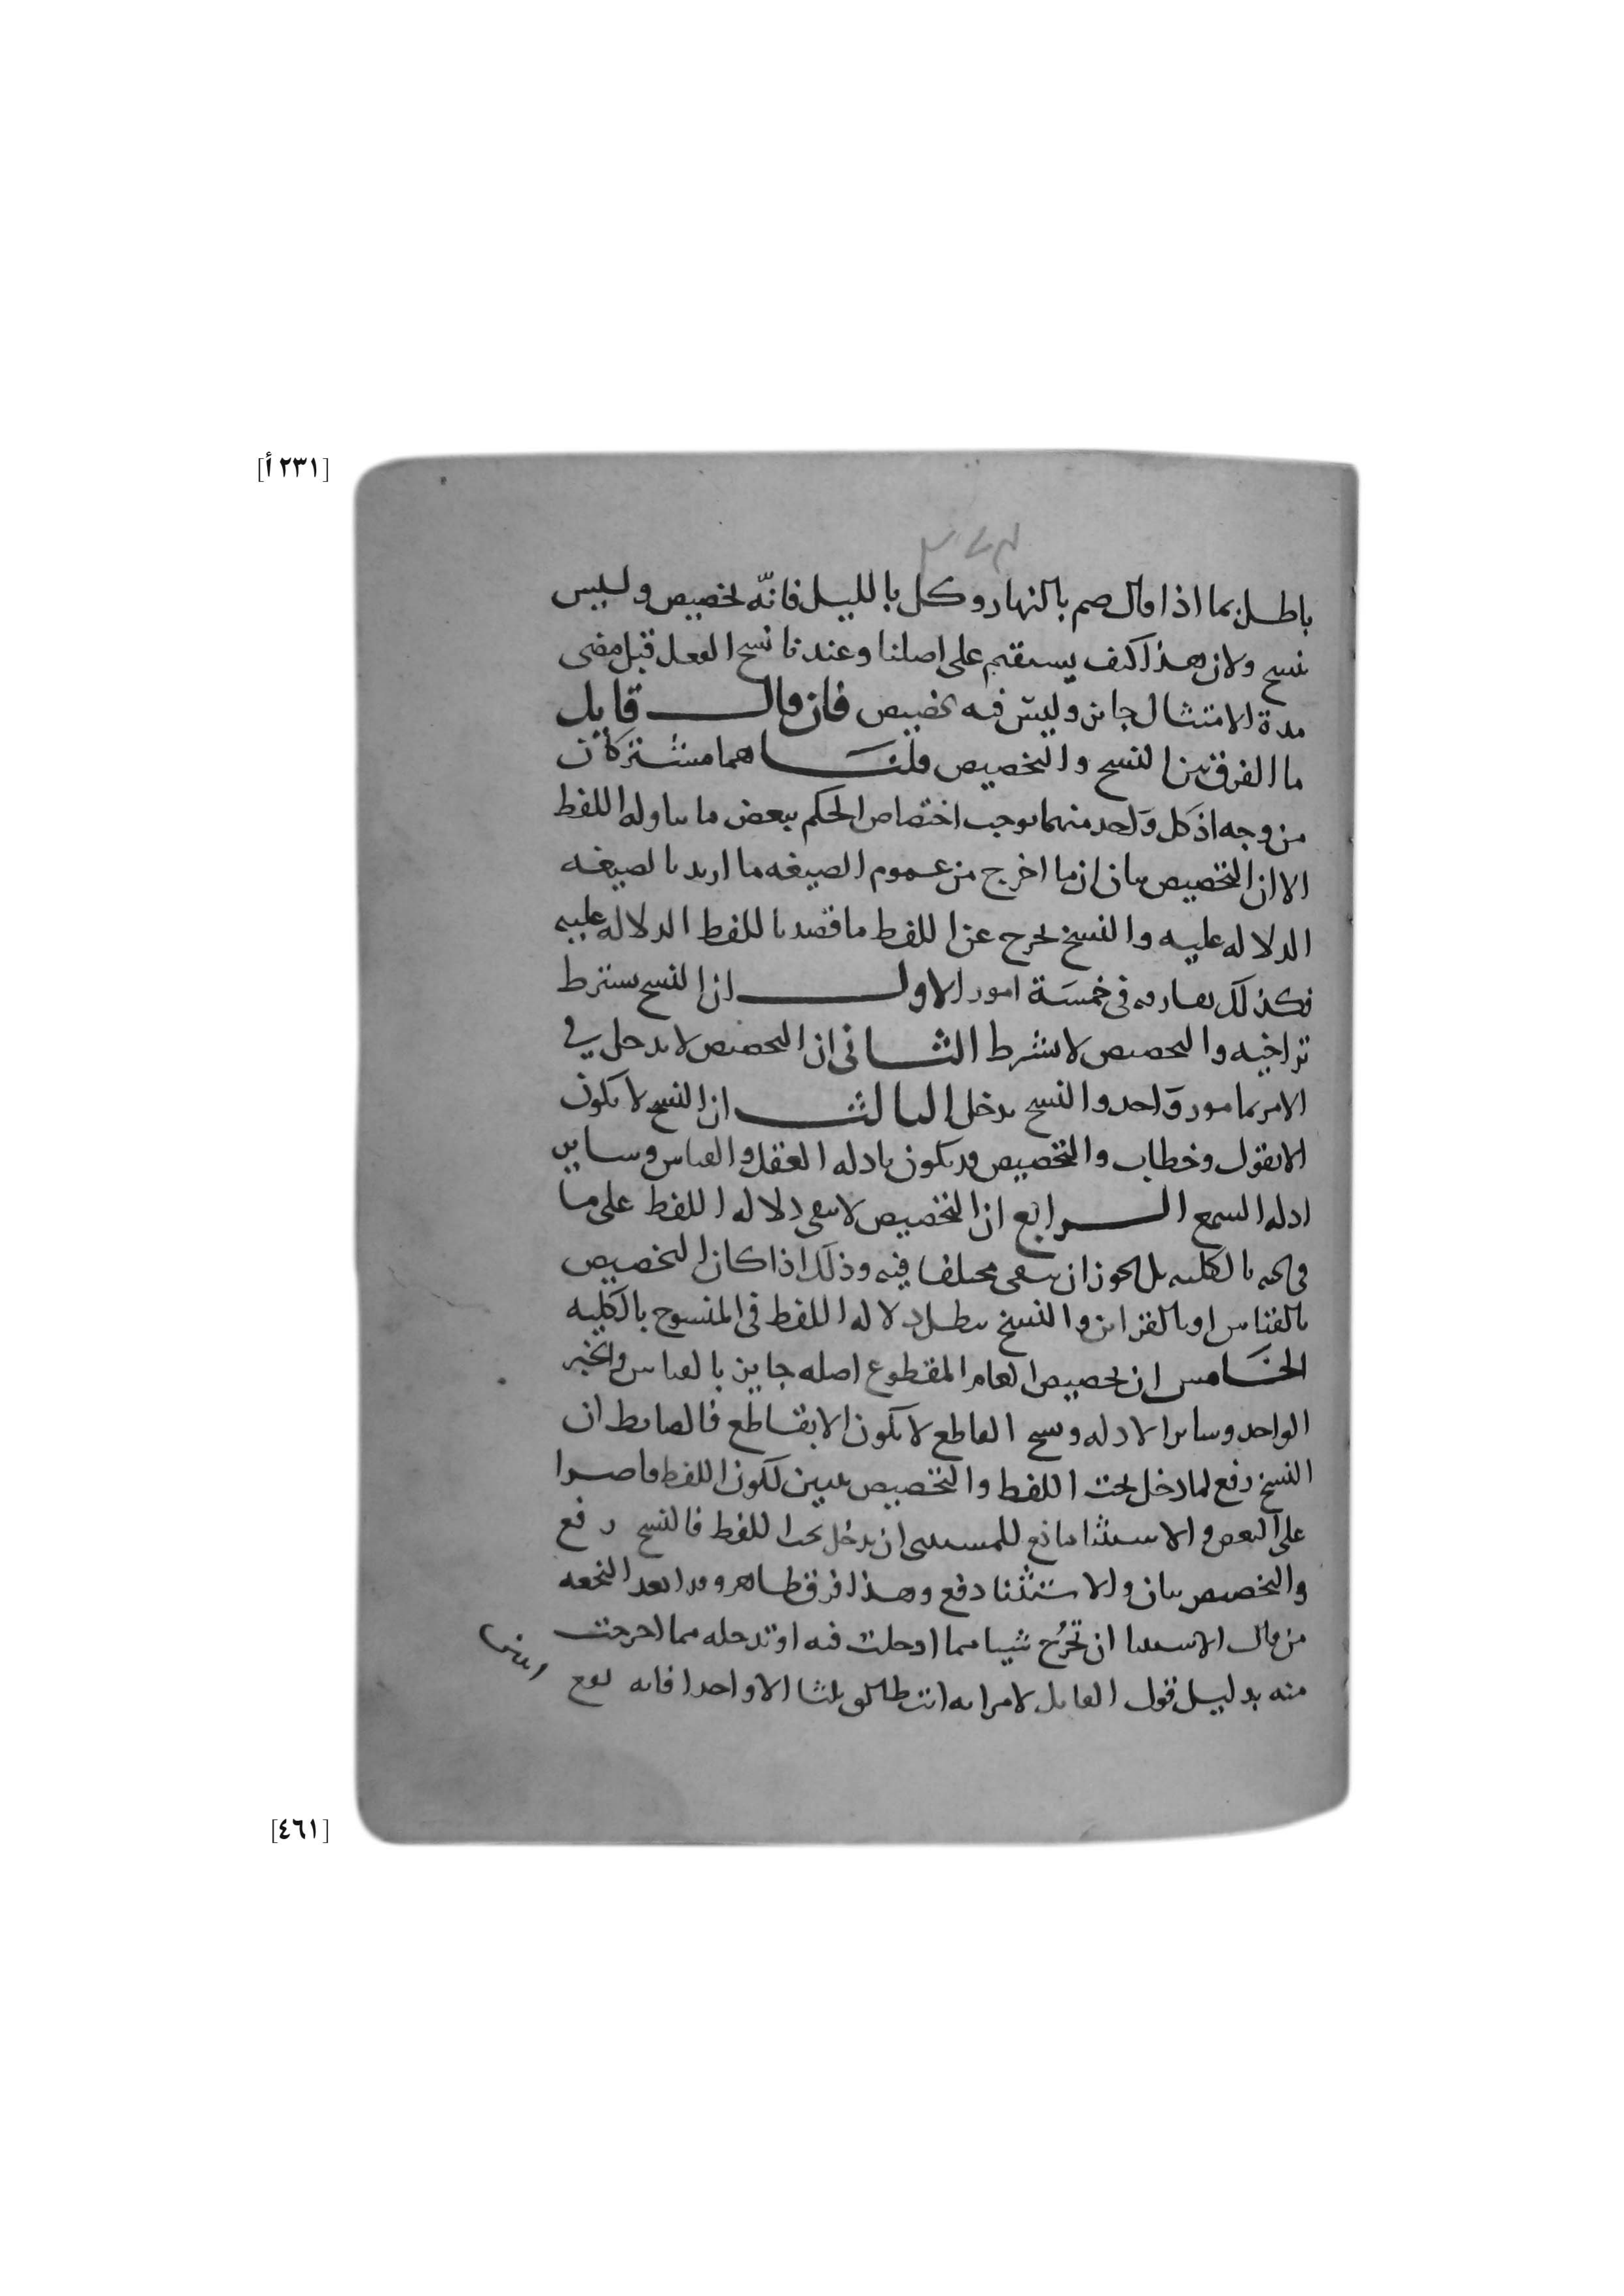 [٢٣١ أ]
باطل بما اذا قال صم بالنهار وكل بالليل فانّه تخصيص وليس
نسخ ولان هذا كيف يستقيم على اصلنا وعندنا نسخ الفعل قبل مضى
مدة الامتثال جايز وليس فيه تخصيص فان قال قايل
ما الفرق بين النسخ والتخصيص قلنا هما مشتركان
من وجه اذ كل واحد منهما يوجب اختصاص الحكم ببعض ما يتناوله اللفظ
الا ان التخصيص بيان ان ما اخرج من عموم الصيغه ما اريد بالصيغه
الدلاله عليه والنسخ يخرج عن اللفظ ما قصد باللفظ الدلاله عليه
فكذلك يفارقه في خمسة امور الاول ان النسخ يشترط
تراخيه والتخصيص لا يشترط الثاني ان التخصيص لا يدخل في
الامر بمامور واحد والنسخ يدخل الثالث ان النسخ لا يكون
الا بقول وخطاب والتخصيص قد يكون بادله العقل والقياس وساير
ادله السمع الرابع ان التخصيص لا ينفي دلاله اللفظ على ما
بقي تحته بالكليه بل يجوز ان يبقى مختلفا فيه وذلك اذا كان التخصيص
بالقياس او بالقراين والنسخ يبطل دلاله اللفظ في المنسوخ بالكليه
الخامس ان تخصيص العام المقطوع اصله جايز بالقياس والخبر
الواحد وساير الادله ونسخ القاطع لا يكون الا بقاطع فالضابط ان
النسخ رفع لما دخل تحت اللفظ والتخصيص يبين لكون اللفظ قاصرا
على البعض والاستثنا مانع للمستثنى ان يدخل تحت اللفظ فالنسخ رفع
والتخصيص بيان والاستثنا دفع وهذا فرق ظاهر وقد ابعد النجعه
من قال الاستثنا ان تخرج شيا مما ادخلت فيه او تدخله مما اخرجت
منه بدليل قول القايل لامراته انت طالق ثلثا الا واحدا فانه يقع
[٤٦١]